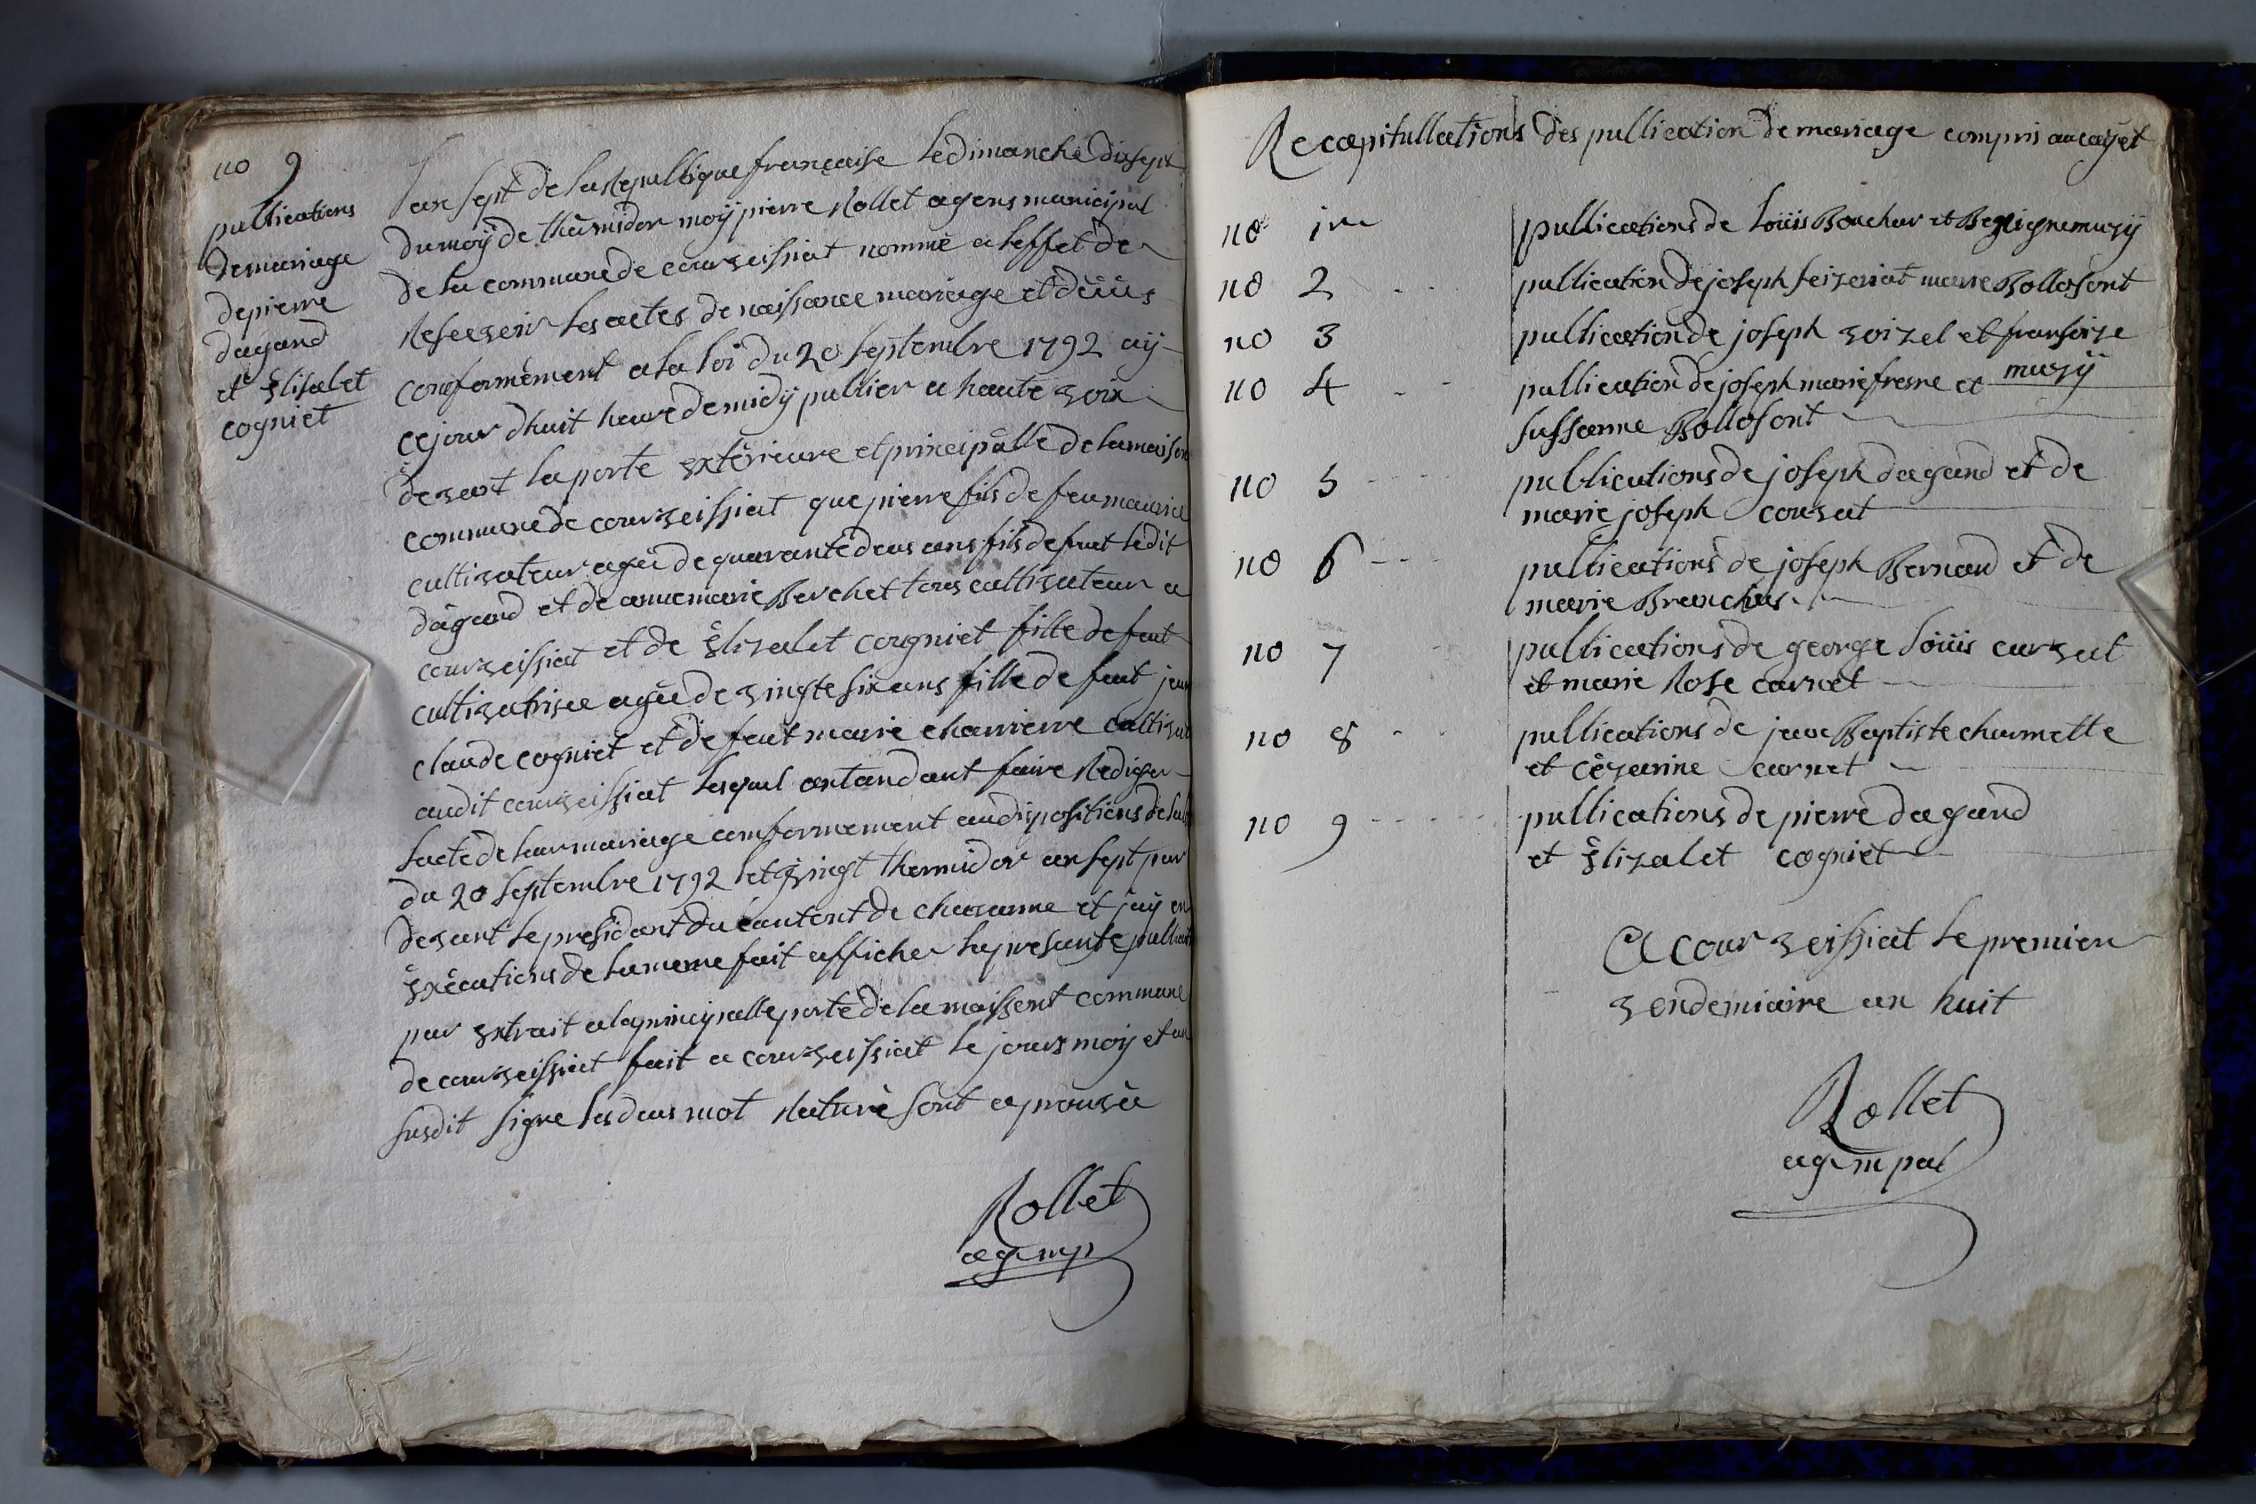 no 9
publications
de mariage
de pierre
dagand
et Élisabet
cogniet
Lan sept de la Republique francaise le dimanche dixsept
du moÿ de thermidor moÿ pierre Rollet agens municipal
de la commune de courveissiat nommé a leffet de
Resevoir les actes de naissance mariage et déüs
conformément a la loi du 20 septembre 1792 aÿ
cejour dhuit heure de midÿ publier a haute voix
devant la porte extérieure et principalle de la maison
commune de courveissiat que pierre fils de feu maurice
cultivateur agée de quarante deus ans fils de feut ledit
dagand et de anne marie Berchet tous cultivateur a
courveissiat et de Élizabet cogniet fille de feut
cultivatrisce agée de vingte six ans fille de feut jean
claude cogniet et de feut marie charrierre cultivat
audit courveissiat lesquel antandant faire Rediger
lacte de leur mariage comformement au dispositions de la loi
du 20 septembre 1792 et vingt thermidor an sept par
devant le president du cantont de chavanne et jaÿ en
exécutions de la meme fait afficher la presante publicat
par extrait a la principalle porte de la maissont commune
de courveissiat fait a courveissiat le jours moÿ et an
susdit signe les deus mot Raturé sont aprouvée
Rollet
ag mp
Recapitullations des publication de mariage compris au cayet
no 1re publications de Loüis Bouchar et Begnigne muzÿ
no 2 publication de joseph seizeriat marie Bollosont
no 3 publication de joseph voizel et fransoize
muzÿ
no 4 publication de joseph marie fresne et
sussanne Bollosont
no 5 publications de joseph dagand et de
marie joseph couvat
no 6 publications de joseph Bernard et de
marie Branchus
no 7 publications de george Loüis curvat
et marie Rose carnet
no 8 publications de jean Baptiste charmette
et Cézarine carnet
no 9 publications de pierre dagand
et Élizabet cogniet
A courveissiat le premier
vendemiaire an huit
Rollet
ag mpal